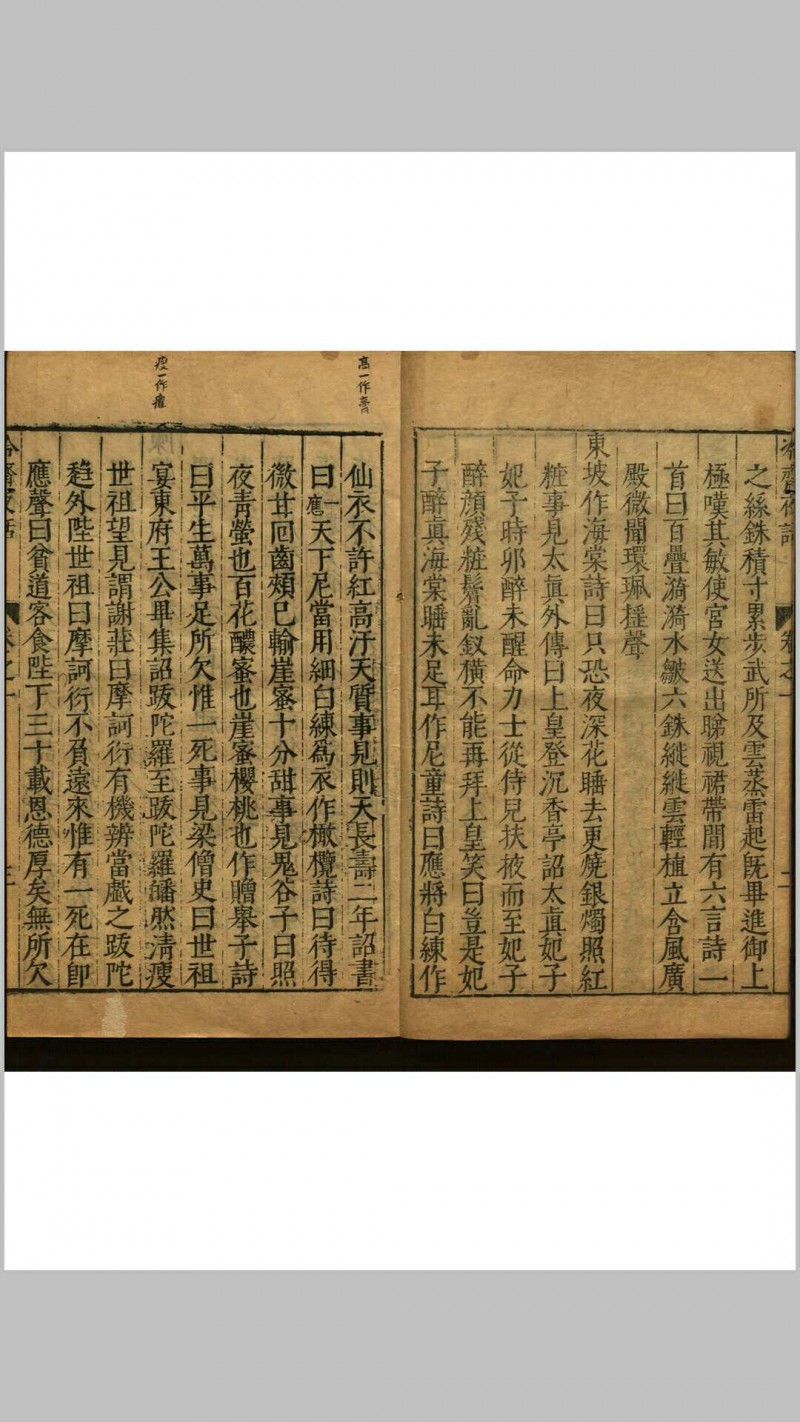 之絲銖積寸累步武所及雲蒸雷起旣畢進御上
極嘆其敏使宮女送出睇視裙帶間有六言詩一
首曰百疊漪漪水皺六銖縰縰雲輕植立含風廣
殿微聞環珮搖聲
東坡作海棠詩曰只恐夜深花睡去更燒銀燭照紅
粧事見太眞外傳曰上皇登沉香亭詔太眞妃子
妃子時卯醉未醒命力士從侍兒扶掖而至妃子
醉顔殘粧鬢亂釵橫不能再拜上皇笑曰豈是妃
子醉真海棠睡未足耳作尼童詩曰應將白練作
高一作膏
仙衣不許紅高汙天質事見則天長壽二年詔書
曰應一天下尼當用細白練為衣作橄欖詩曰待得
微甘回齒頰已輸崖蜜十分甜事見鬼谷子曰照
夜青螢也百花醲蜜也崖蜜櫻桃也作贈舉子詩
曰平生萬事足所欠惟一死事見梁僧史曰世祖
瘦一作癯
宴東府王公畢集詔跋陀羅至跋陀羅皤然清瘦
世祖望見謂謝莊曰摩訶衍有機辨當戲之跋陀
趍外陛世祖曰摩訶衍不負遠來惟有一死在卽
應聲曰貧道客食陛下三十載恩德厚矣無所欠